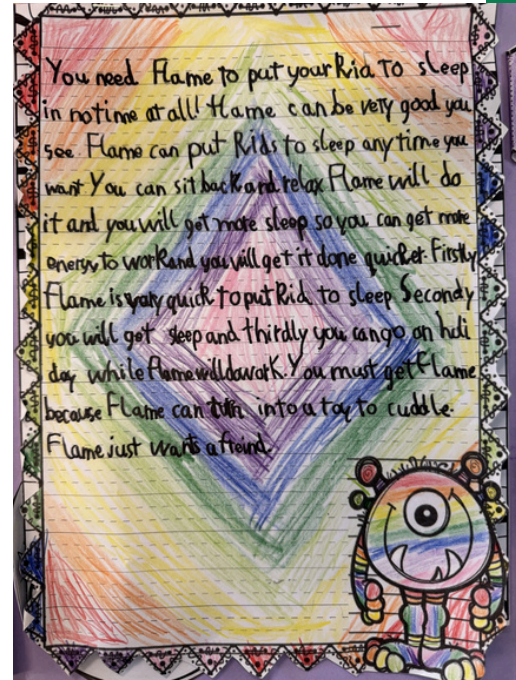 You need Flame to put your Kid To sleep
in no time at all! Flame can be very good you
see. Flame can put Kids to sleep any time you
want. You can sit back and relax Flame will do
it and you will get more sleep so you can get more
energy to work and you will get it done quicker. Firstly
Flame is very quick to put Kid to sleep Secondy
you will get sleep and thirdly you can go on holi
day while Flame will do work. You must get Flame
because Flame can turn into a toy to cuddle.
Flame just wants a freind.